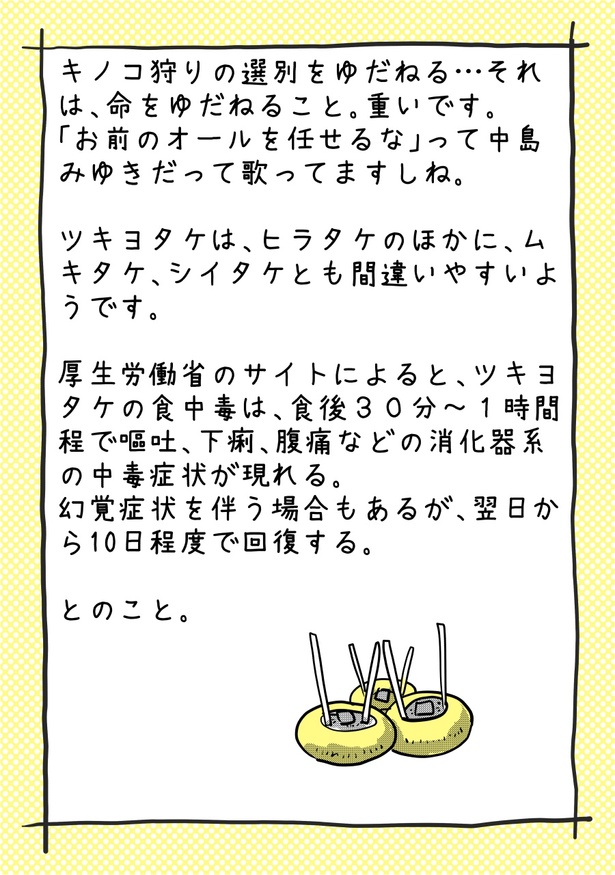 キノコ狩りの選別をゆだねる…それ
は、命をゆだねること。重いです。
「お前のオールを任せるな」って中島
みゆきだって歌ってますしね。
ツキヨタケは、ヒラタケのほかに、ム
キタケ、シイタケとも間違いやすいよ
うです。
厚生労働省のサイトによると、ツキヨ
タケの食中毒は、食後30分～1時間
程で嘔吐、下痢、腹痛などの消化器系
の中毒症状が現れる。
幻覚症状を伴う場合もあるが、翌日か
ら10日程度で回復する。
とのこと。